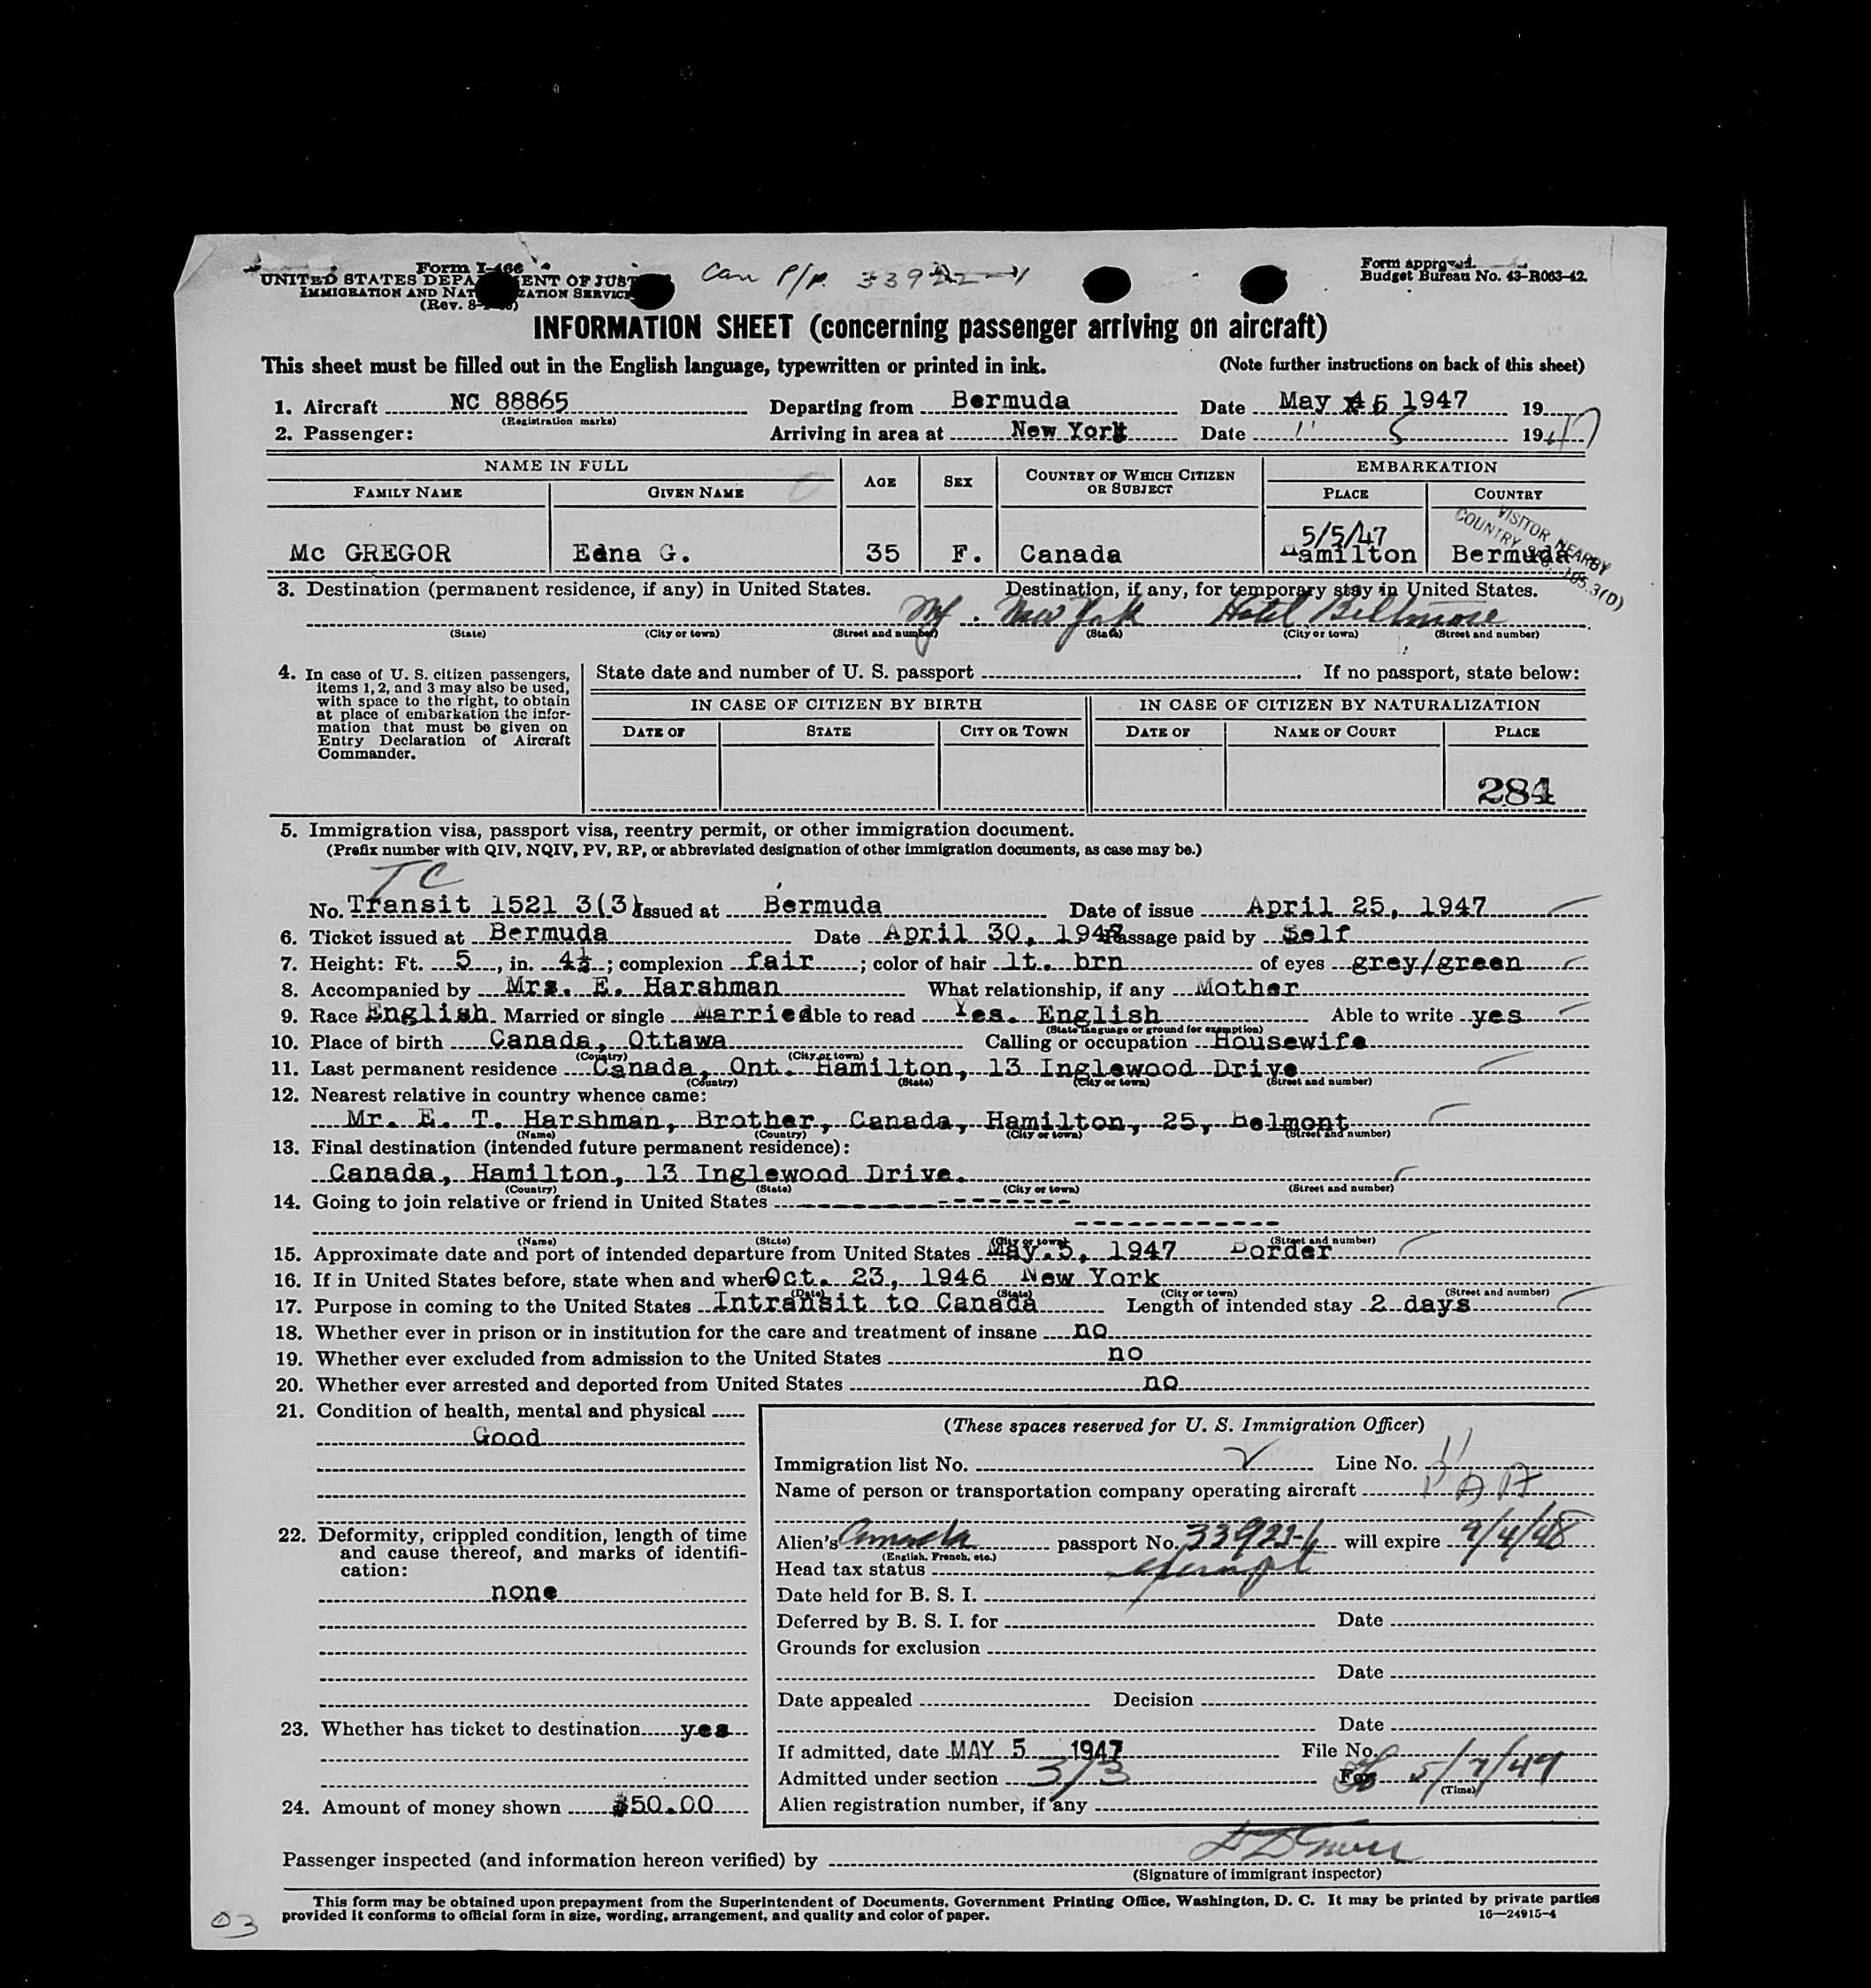 Form I-466
UNITED STATES DEPARTMENT OF JUSTICE
IMMIGRATION AND NATURALIZATION SERVICE
(Rev. 8-
Can P/P. 33922-1
Form approved.
Budget Bureau No. 43-R063-42.
INFORMATION SHEET (concerning passenger arriving on aircraft)
This sheet must be filled out in the English language, typewritten or printed in ink. (Note further instructions on back of this sheet)
1. Aircraft NC 88865 Departing from Bermuda Date May 5 1947 19
(Registration marks)
2. Passenger: Arriving in area at New York Date " 5 1947
NAME IN FULL AGE SEX COUNTRY OF WHICH CITIZEN OR SUBJECT EMBARKATION
FAMILY NAME GIVEN NAME PLACE COUNTRY
5/5/47 VISITOR NEARBY COUNTRY 165.3(D)
Mc GREGOR Edna G. 35 F. Canada Hamilton Bermuda
3. Destination (permanent residence, if any) in United States. Destination, if any, for temporary stay in United States.
New York Hotel Biltmore
(State) (City or town) (Street and number) (State) (City or town) (Street and number)
4. In case of U. S. citizen passengers, items 1, 2, and 3 may also be used, with space to the right, to obtain at place of embarkation the information that must be given on Entry Declaration of Aircraft Commander.
State date and number of U. S. passport If no passport, state below:
IN CASE OF CITIZEN BY BIRTH IN CASE OF CITIZEN BY NATURALIZATION
DATE OF STATE CITY OR TOWN DATE OF NAME OF COURT PLACE
284
5. Immigration visa, passport visa, reentry permit, or other immigration document.
(Prefix number with QIV, NQIV, PV, RP, or abbreviated designation of other immigration documents, as case may be.)
TC
No. Transit 1521 3(3) Issued at Bermuda Date of issue April 25, 1947
6. Ticket issued at Bermuda Date April 30, 1947 Passage paid by Self
7. Height: Ft. 5, in. 4½; complexion fair; color of hair lt. brn of eyes grey/green
8. Accompanied by Mrs. E. Harshman What relationship, if any Mother
9. Race English Married or single Married Able to read Yes. English Able to write yes
(State language or ground for exemption)
10. Place of birth Canada, Ottawa Calling or occupation Housewife
(Country) (City or town)
11. Last permanent residence Canada, Ont. Hamilton, 13 Inglewood Drive
(Country) (State) (City or town) (Street and number)
12. Nearest relative in country whence came:
Mr. E. T. Harshman, Brother, Canada, Hamilton, 25, Belmont
(Name) (Country) (City or town) (Street and number)
13. Final destination (intended future permanent residence):
Canada, Hamilton, 13 Inglewood Drive.
(Country) (State) (City or town) (Street and number)
14. Going to join relative or friend in United States
(Name) (State) (City or town) (Street and number)
15. Approximate date and port of intended departure from United States May.5, 1947 Border
16. If in United States before, state when and where Oct. 23, 1946 New York
(Date) (State) (City or town) (Street and number)
17. Purpose in coming to the United States Intransit to Canada Length of intended stay 2 days
18. Whether ever in prison or in institution for the care and treatment of insane no
19. Whether ever excluded from admission to the United States no
20. Whether ever arrested and deported from United States no
21. Condition of health, mental and physical
Good
22. Deformity, crippled condition, length of time and cause thereof, and marks of identification:
none
23. Whether has ticket to destination yes
24. Amount of money shown $50.00
(These spaces reserved for U. S. Immigration Officer)
Immigration list No. Line No. 11
Name of person or transportation company operating aircraft PAA
Alien's Canada passport No. will expire 9/4/48
(English, French, etc.)
Head tax status exempt
Date held for B. S. I.
Deferred by B. S. I. for Date
Grounds for exclusion
Date
Date appealed Decision
Date
If admitted, date MAY 5 1947 File No.
Admitted under section 3/3 For 5/7/47
(Time)
Alien registration number, if any
Passenger inspected (and information hereon verified) by
(Signature of immigrant inspector)
This form may be obtained upon prepayment from the Superintendent of Documents, Government Printing Office, Washington, D. C. It may be printed by private parties
provided it conforms to official form in size, wording, arrangement, and quality and color of paper. 16—24915-4
03